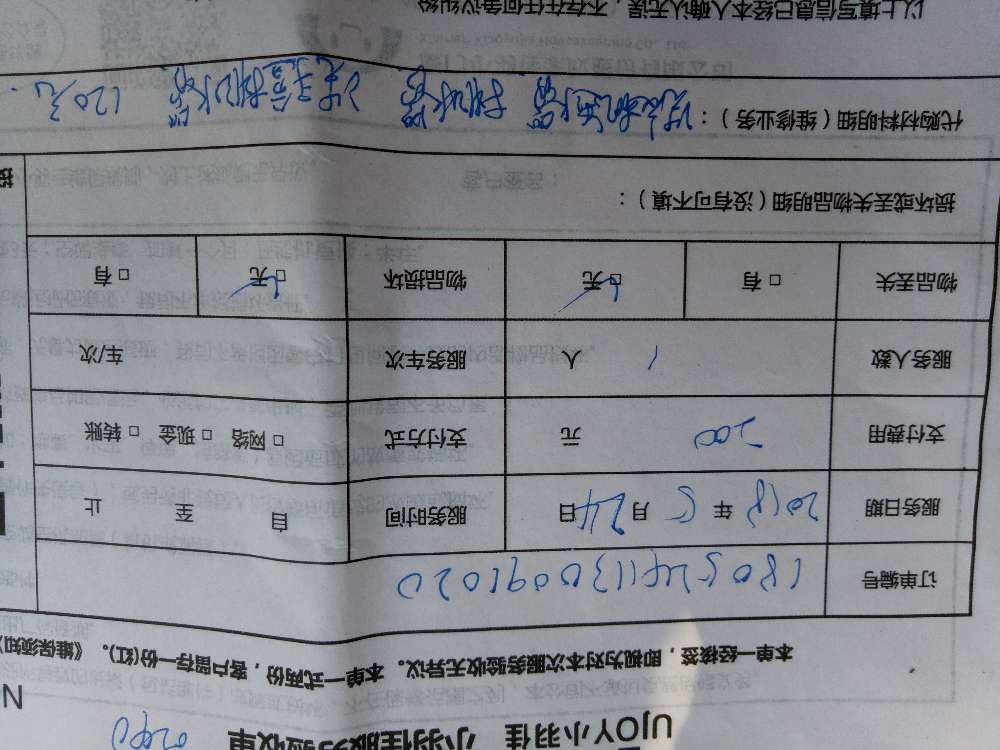 UJOY小羽佳 小羽佳服务验收单
本单一经核签，即视为对本次服务验收无异议。本单一式两份，客户留存一份(红)。《维保须知
订单编号 1805241130091020
服务日期 2018年5月24日 服务时间 自 至 止
支付费用 200 元 支付方式 □网络 □现金 □转账
服务人数 1 人 服务车次 车/次
物品丢失 □有 □无 物品损坏 □无 □有
损坏或丢失物品明细（没有可不填）：
代购材料明细（维修业务）： 120元.
以上填写信息已经本人确认无误，不存在任何争议纠纷